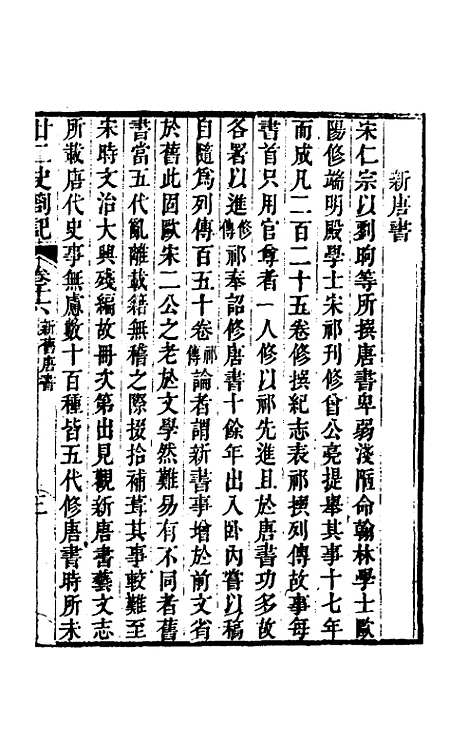 新唐書
宋仁宗以劉昫等所撰唐書卑弱淺陋命翰林學士歐
陽修端明殿學士宋祁刊修曾公亮提舉其事十七年
而成凡二百二十五卷修撰紀志表祁撰列傳故事每
書首只用官尊者一人修以祁先進且於唐書功多故
各署以進修傳祁奉詔修唐書十餘年出入臥內嘗以稿
自隨爲列傳百五十卷祁傳論者謂新書事增於前文省
於舊此固歐宋二公之老於文學然難易有不同者舊
書當五代亂離載籍無稽之際掇拾補葺其事較難至
宋時文治大興殘編故冊次第出見觀新唐書藝文志
所載唐代史事無慮數十百種皆五代修唐書時所未
廿二史劄記 卷十六 新舊唐書